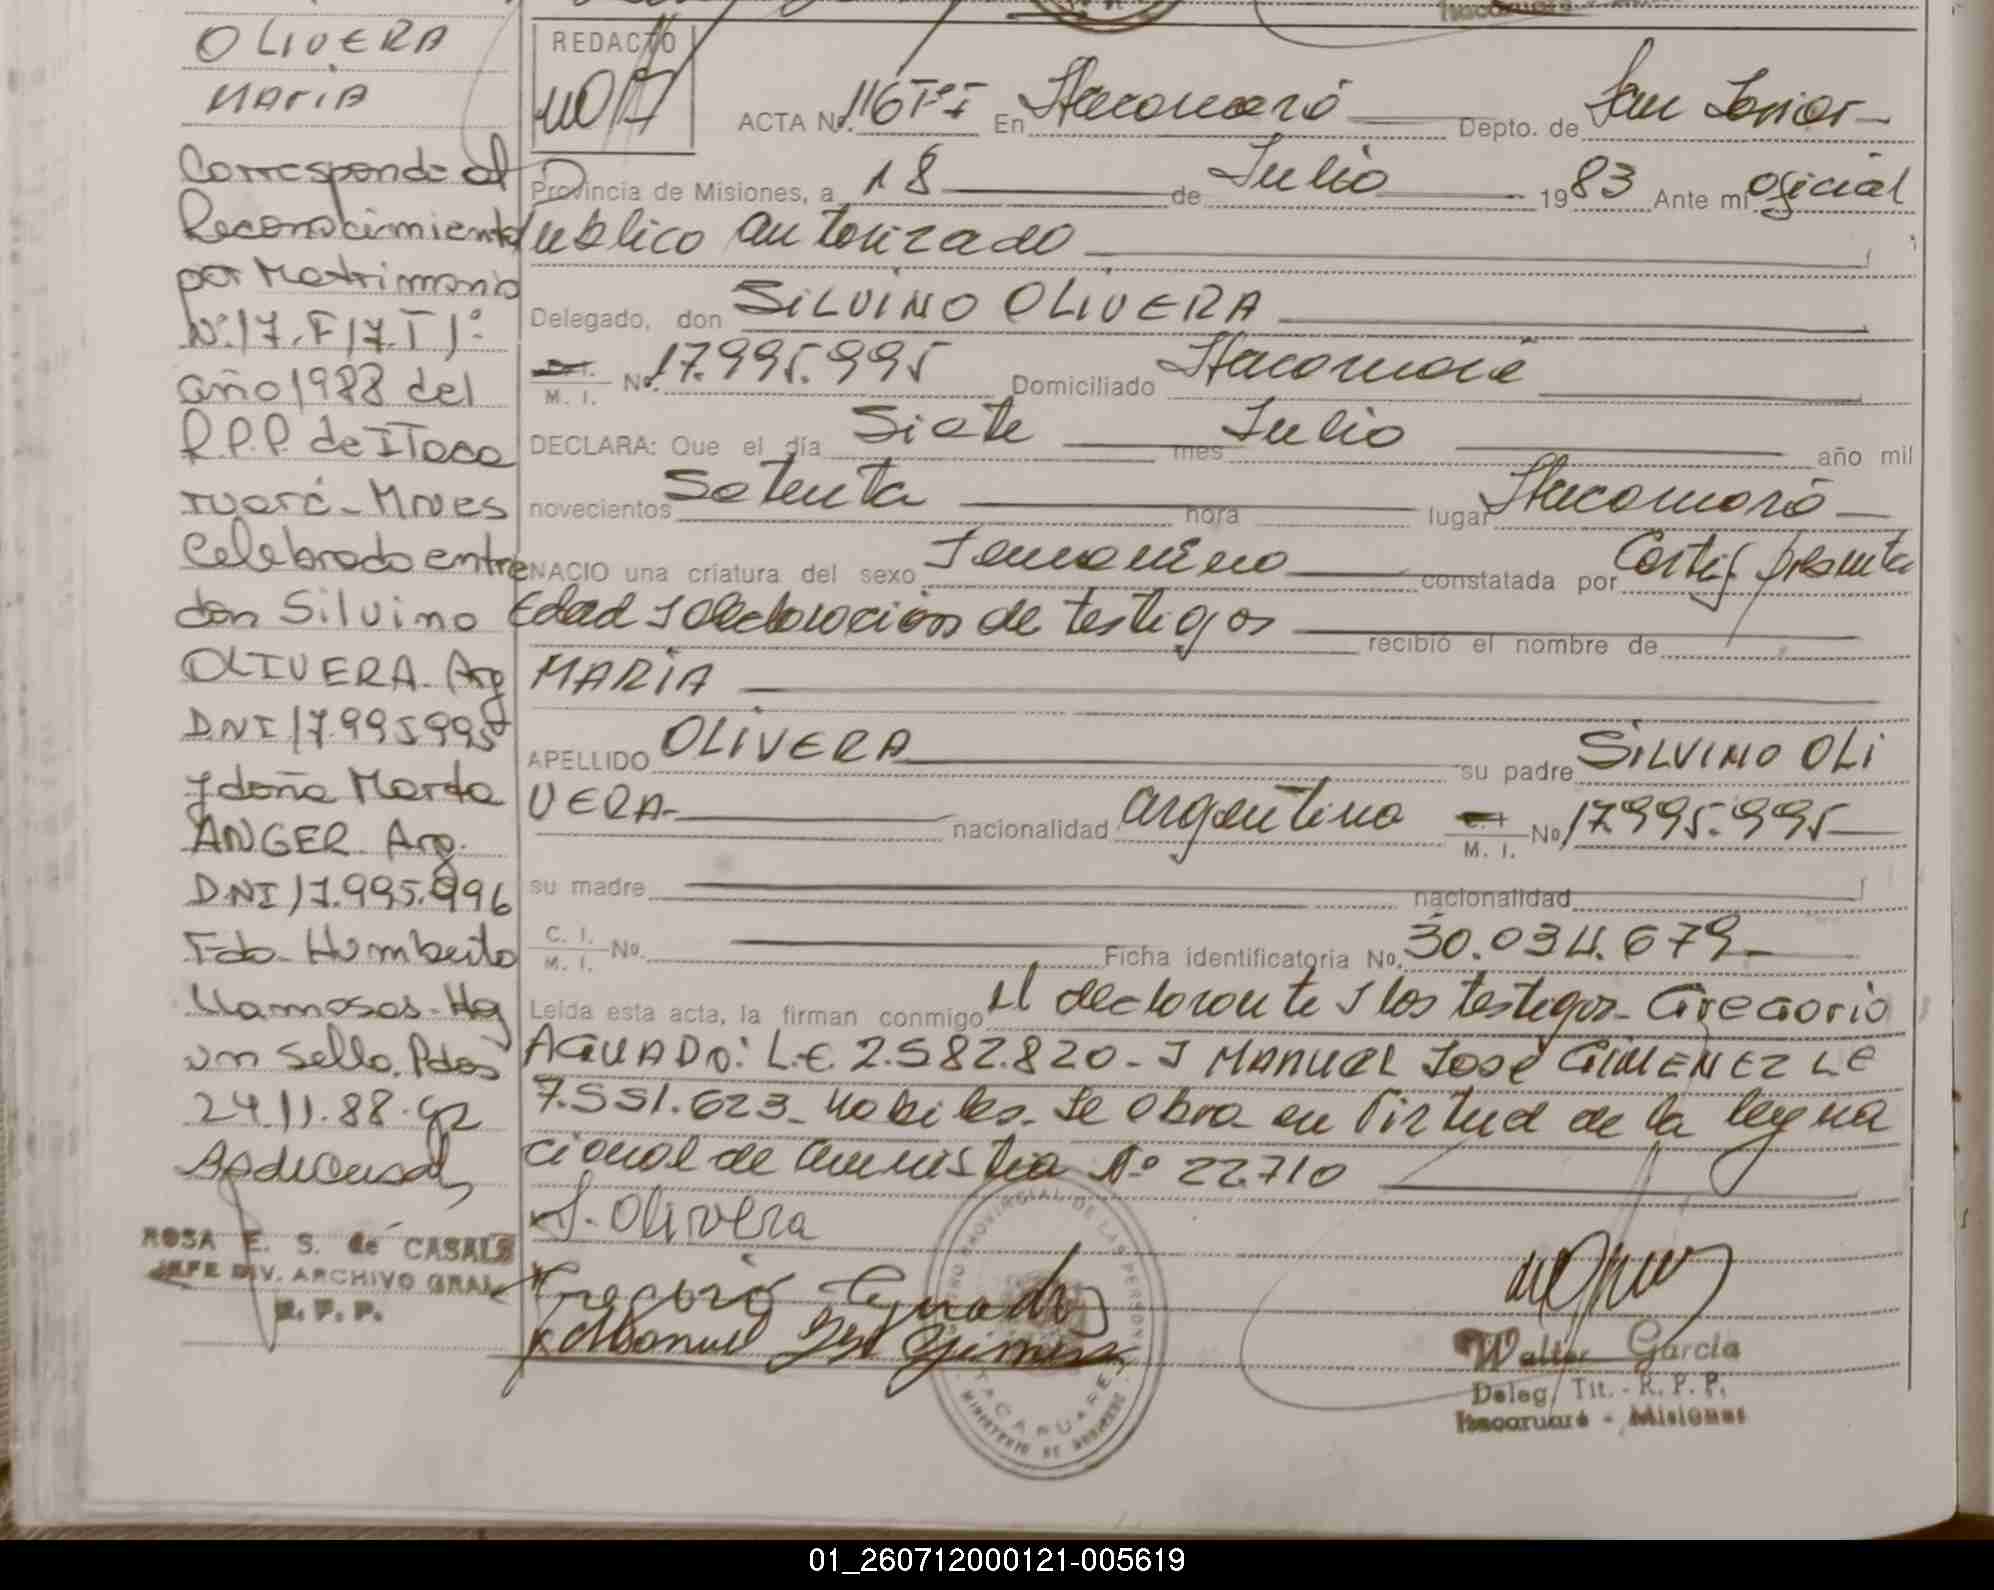 OLIVERA
MARIA
Corresponde al
Reconocimiento
por Matrimonio
Nº.17.F17.T1º
año 1988 del
R.P.P. de ITaca
ruaré - Mnes
Celebrado entre
don Silvino
OLIVERA. Arg
DNI 17.995995
y doña Marta
ANGER. Arg.
DNI 17.995.996
Fdo. Humberto
Llamosas - Hay
un sello. Pdas
24.11.88.
ROSA E. S. de CASALS
JEFE DIV. ARCHIVO GRAL
R. P. P.
REDACTO
ACTA Nº. 116 Tº I En Itacaruaré Depto. de San Javier-
Provincia de Misiones, a 18 de Julio 1983 Ante mí Oficial
Publico autorizado
Delegado, don SILVINO OLIVERA
M. I. Nº. 17.995.995 Domiciliado Itacaruaré
DECLARA: Que el día Siete mes Julio año mil
novecientos Setenta hora lugar Itacaruaré
NACIO una criatura del sexo Femenino constatada por Certif presunta
Edad y declaración de testigos recibió el nombre de
MARIA
APELLIDO OLIVERA su padre SILVINO OLI
VERA- nacionalidad argentina M. I. Nº 17.995.995
su madre nacionalidad
C. I. M. I. Nº. Ficha identificatoria No. 30.034.679-
Leída esta acta, la firman conmigo el declarante y los testigos- GREGORIO
AGUADO: L.E 2.582.820 - y MANUEL JOSÉ GIMENEZ LE
7.551.623- habiles- Se obra en Virtud de la ley na
cional de amnistia Nº 22.710
S. Olivera
Gregorio Aguado
Manuel José Gimenez
REGISTRO PROVINCIAL DE LAS PERSONAS
ITACARUARE
MINISTERIO DE GOBIERNO
Walter García
Deleg. Tit. - R. P. P.
Itacaruaré - Misiones
01_260712000121-005619